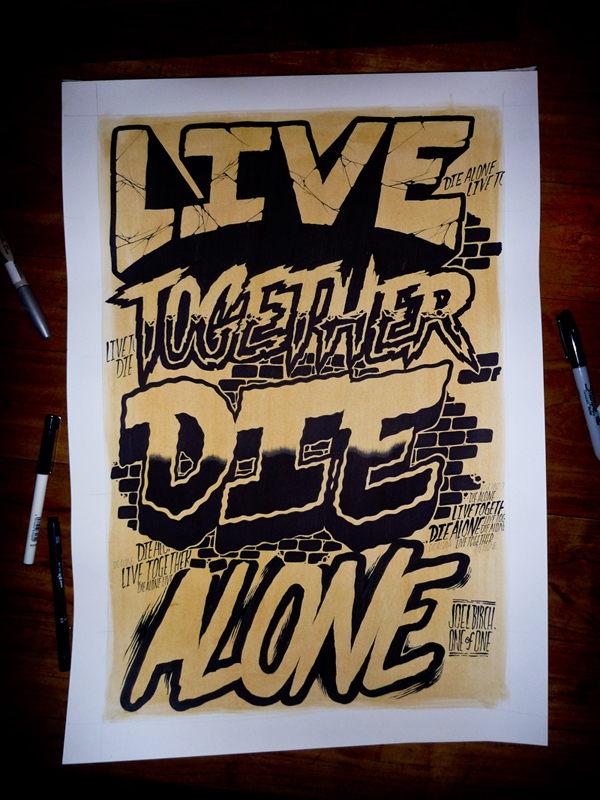 LIVE
DIE ALONE
LIVE TO
TOGETHER
LIVE T
DIE
DIE
DIE ALONE
LIVE TOGETH
DIE ALONE
LIVE TOGETHER
DIE
LIVE TOGETHER
DIE ALONE
ALONE
JOEL BIRCH.
ONE of ONE